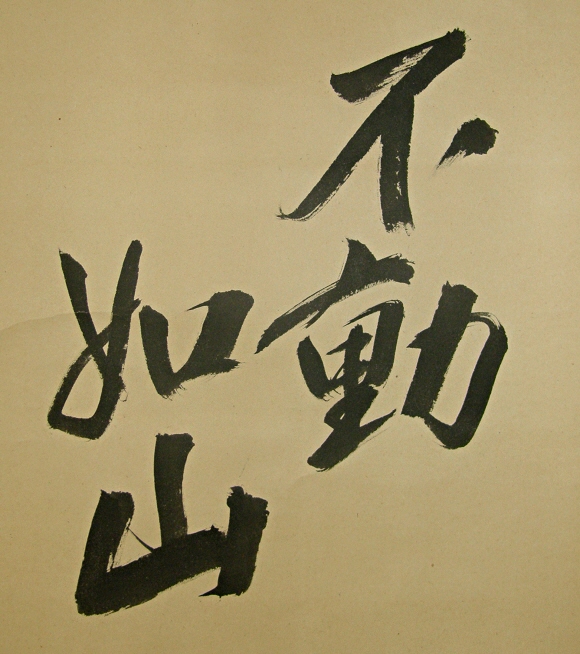 不動
如山